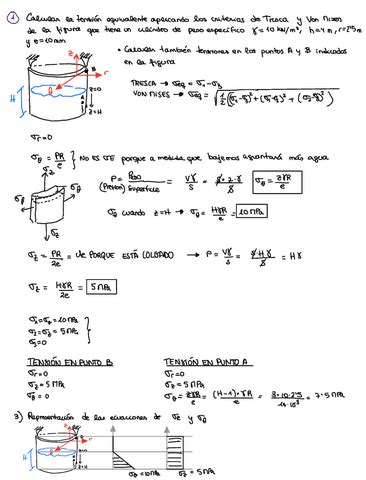 1 Calcular la tensión equivalente aplicando los criterios de Tresca y Von Mises
de la figura que tiene un cilindro de peso específico γ = 10 kN/m³, h=4m, r=2'5m
y e=10mm
• Calcular también tensiones en los puntos A y B indicados
en la figura
TRESCA → σeq = σ1 - σ3
VON MISES → σeq = √(1/2 [(σ1-σ2)² + (σ1-σ3)² + (σ2-σ3)²])
z
B
r
z=0
H
z=H
σr=0
σθ = PR/e } NO ES CTE porque a medida que bajemos aguantará más agua
σz
σθ
σθ
σz
P = PESO/Superficie = Vγ/S = S·z·γ/S
(Presión)
σθ = zγR/e
σθ cuando z=H → σθ = HγR/e = 10 MPa
σz = PR/2e = cte PORQUE ESTÁ COLGADO → P = Vγ/S = SHγ/S = Hγ
σz = HγR/2e = 5 MPa
σ1=σθ = 10 MPa
σ2=σz = 5 MPa
σ3=0
TENSIÓN EN PUNTO B
σr=0
σz = 5 MPa
σθ = 0
TENSIÓN EN PUNTO A
σr=0
σz = 5 MPa
σθ = zγR/e = (H-1)·γR/e = 3·10·2'5/10·10⁻³ = 7'5 MPa
3) Representación de las ecuaciones de σz y σθ
z
r
H
z=H
σθ = 10 MPa
σz = 5 MPa